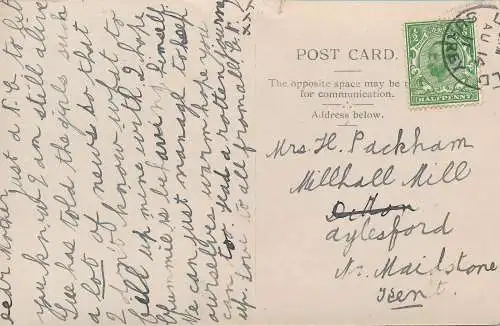 Dear Mother, just a P.C. to let
you know I am still alive
has told the girls such
a lot of news so that
I don't know what to
fill up mine with. I hope
is behaving himself.
We can just manage to keep
ourselves warm hope you
can too. Had a rotten journey
up. Love to all from all.
xxx
POST CARD.
The opposite space may be
for communication.
Address below.
HALFPENNY
AU 16
Mrs. H. Packham
Millhall Mill
Aylesford
Nr. Maidstone
Kent.